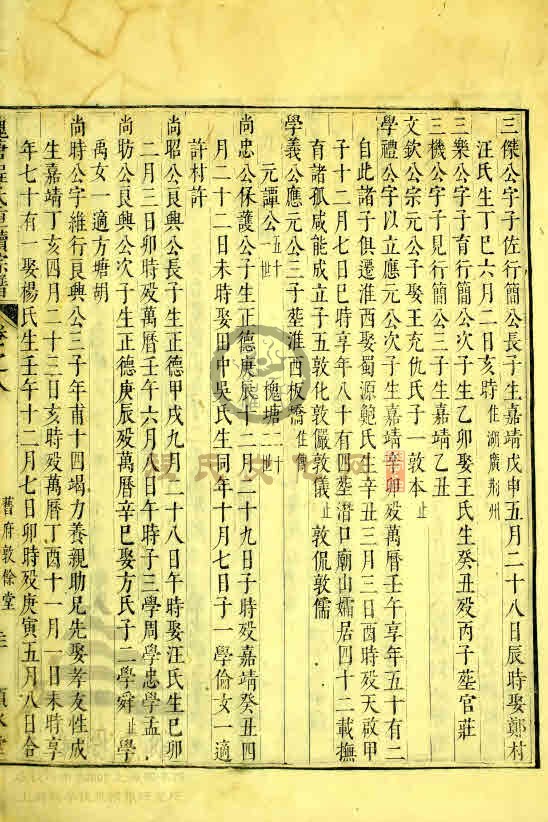 三傑公字子佐行簡公長子生嘉靖戊申五月二十八日辰時娶鄭村
汪氏生丁巳六月二日亥時住湖廣荊州
三樂公字子育行簡公次子生乙卯娶王氏生癸丑歿丙子塟官莊
三機公字子見行簡公三子生嘉靖乙丑
文欽公宗元公子娶王充仇氏子一敦本止
學禮公字以立應元公次子生嘉靖辛卯歿萬曆壬午享年五十有二
自此諸子俱遷淮西娶蜀源範氏生辛丑三月三日酉時歿天啟甲
子十二月七日巳時享年八十有四塟潛口廟山孀居四十二載撫
育諸孤咸能成立子五敦化敦儼敦儀止敦侃敦儒
學義公應元公三子塟淮西板橋住僧
元譚公五十一世 槐塘二十世
尚忠公保護公子生正德庚辰十二月二十九日子時歿嘉靖癸丑四
月二十二日未時娶田中吳氏生同年十月七日子一學倫女一適
許村許
尚昭公良興公長子生正德甲戌九月二十八日午時娶汪氏生巳卯
二月三日卯時歿萬曆壬午六月八日午時子三學周學忠學孟
尚昉公良興公次子生正德庚辰歿萬曆辛巳娶方氏子二學舜止學
禹女一適方塘胡
尚時公字維行良興公三子年甫十四竭力養親助兄先娶孝友性成
生嘉靖丁亥四月二十三日亥時歿萬曆丁酉十一月一日未時享
年七十有一娶楊氏生壬午十二月七日卯時歿庚寅五月八日合
槐塘程氏重續宗譜 卷之八
舊府敦餘堂